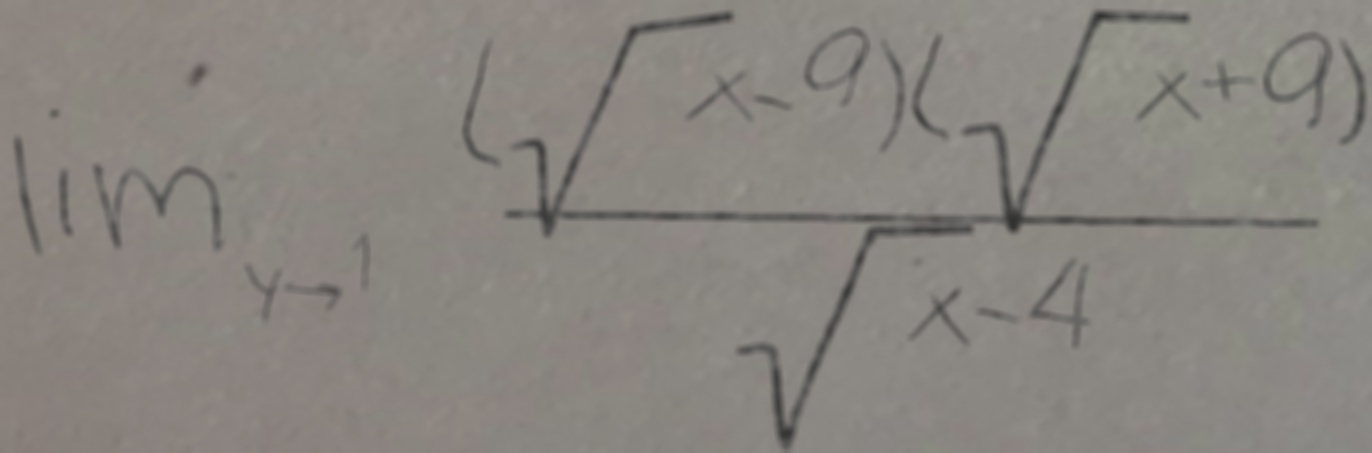 lim y→1 (√x-9)(√x+9) / √x-4